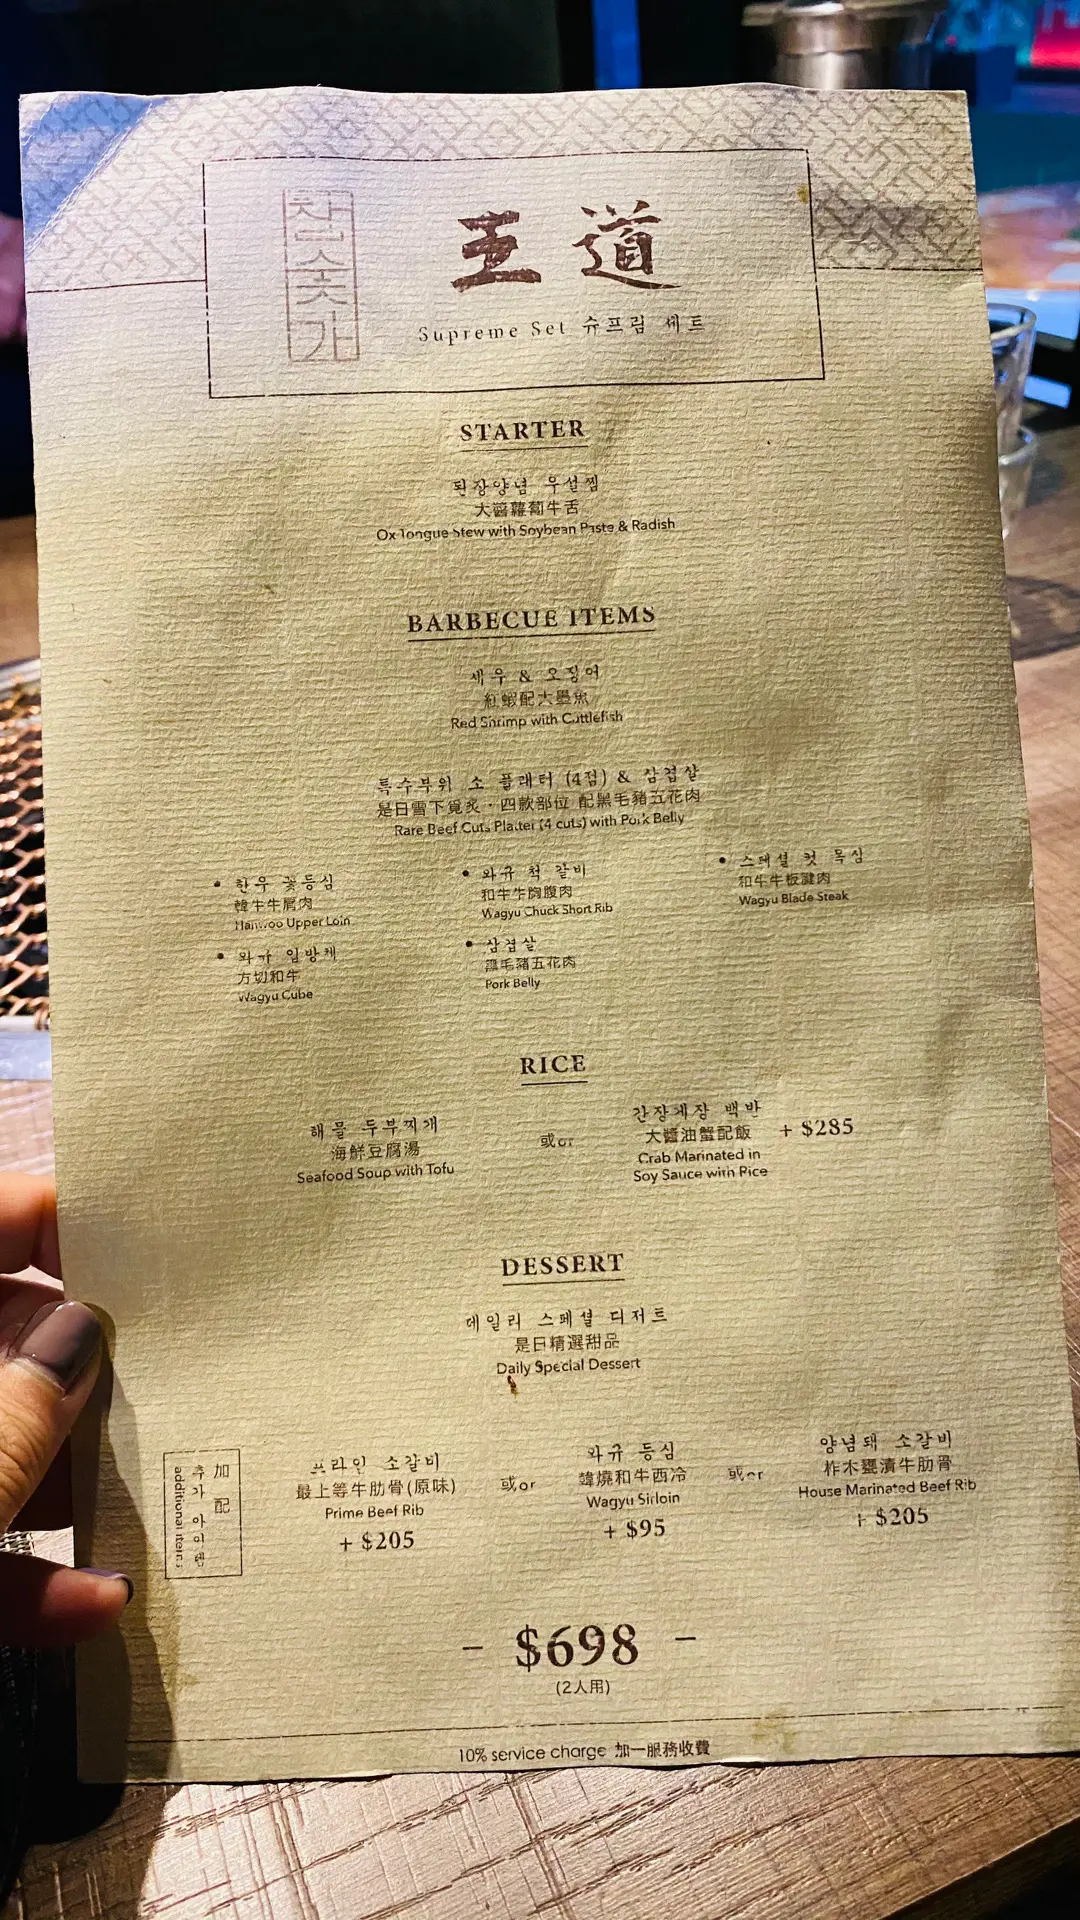 차
숯
가
王道
Supreme Set 슈프림 세트
STARTER
된장양념 우설찜
大醬蘿蔔牛舌
Ox Tongue Stew with Soybean Paste & Radish
BARBECUE ITEMS
새우 & 오징어
紅蝦配大墨魚
Red Shrimp with Cuttlefish
특수부위 소 플래터 (4점) & 삼겹살
是日雪下覓炙·四款部位 配黑毛豬五花肉
Rare Beef Cuts Platter (4 cuts) with Pork Belly
• 한우 꽃등심
韓牛牛肩肉
Hanwoo Upper Loin
• 와규 척 갈비
和牛牛胸腹肉
Wagyu Chuck Short Rib
• 스페셜 컷 목심
和牛牛板腱肉
Wagyu Blade Steak
• 와규 입방체
方切和牛
Wagyu Cube
• 삼겹살
黑毛豬五花肉
Pork Belly
RICE
해물 두부찌개
海鮮豆腐湯
Seafood Soup with Tofu
或or
간장게장 백반
大醬油蟹配飯
Crab Marinated in
Soy Sauce with Rice
+ $285
DESSERT
데일리 스페셜 디저트
是日精選甜品
Daily Special Dessert
加配
추가 아이템
additional items
프라임 소갈비
最上等牛肋骨(原味)
Prime Beef Rib
+ $205
或or
와규 등심
韓燒和牛西冷
Wagyu Sirloin
+ $95
或or
양념돼 소갈비
柞木甕漬牛肋骨
House Marinated Beef Rib
+ $205
- $698 -
(2人用)
10% service charge 加一服務收費